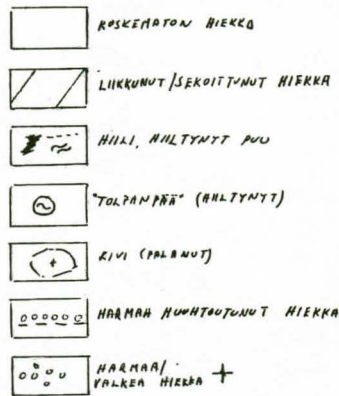 KOSKEMATON HIEKKA
LIIKKUNUT/SEKOITTUNUT HIEKKA
HIILI, HIILTYNYT PUU
"TOLPANPÄÄ" (HIILTYNYT)
KIVI (PALANUT)
HARMAA HUUHTOUTUNUT HIEKKA
HARMAA/
VALKEA HIEKKA